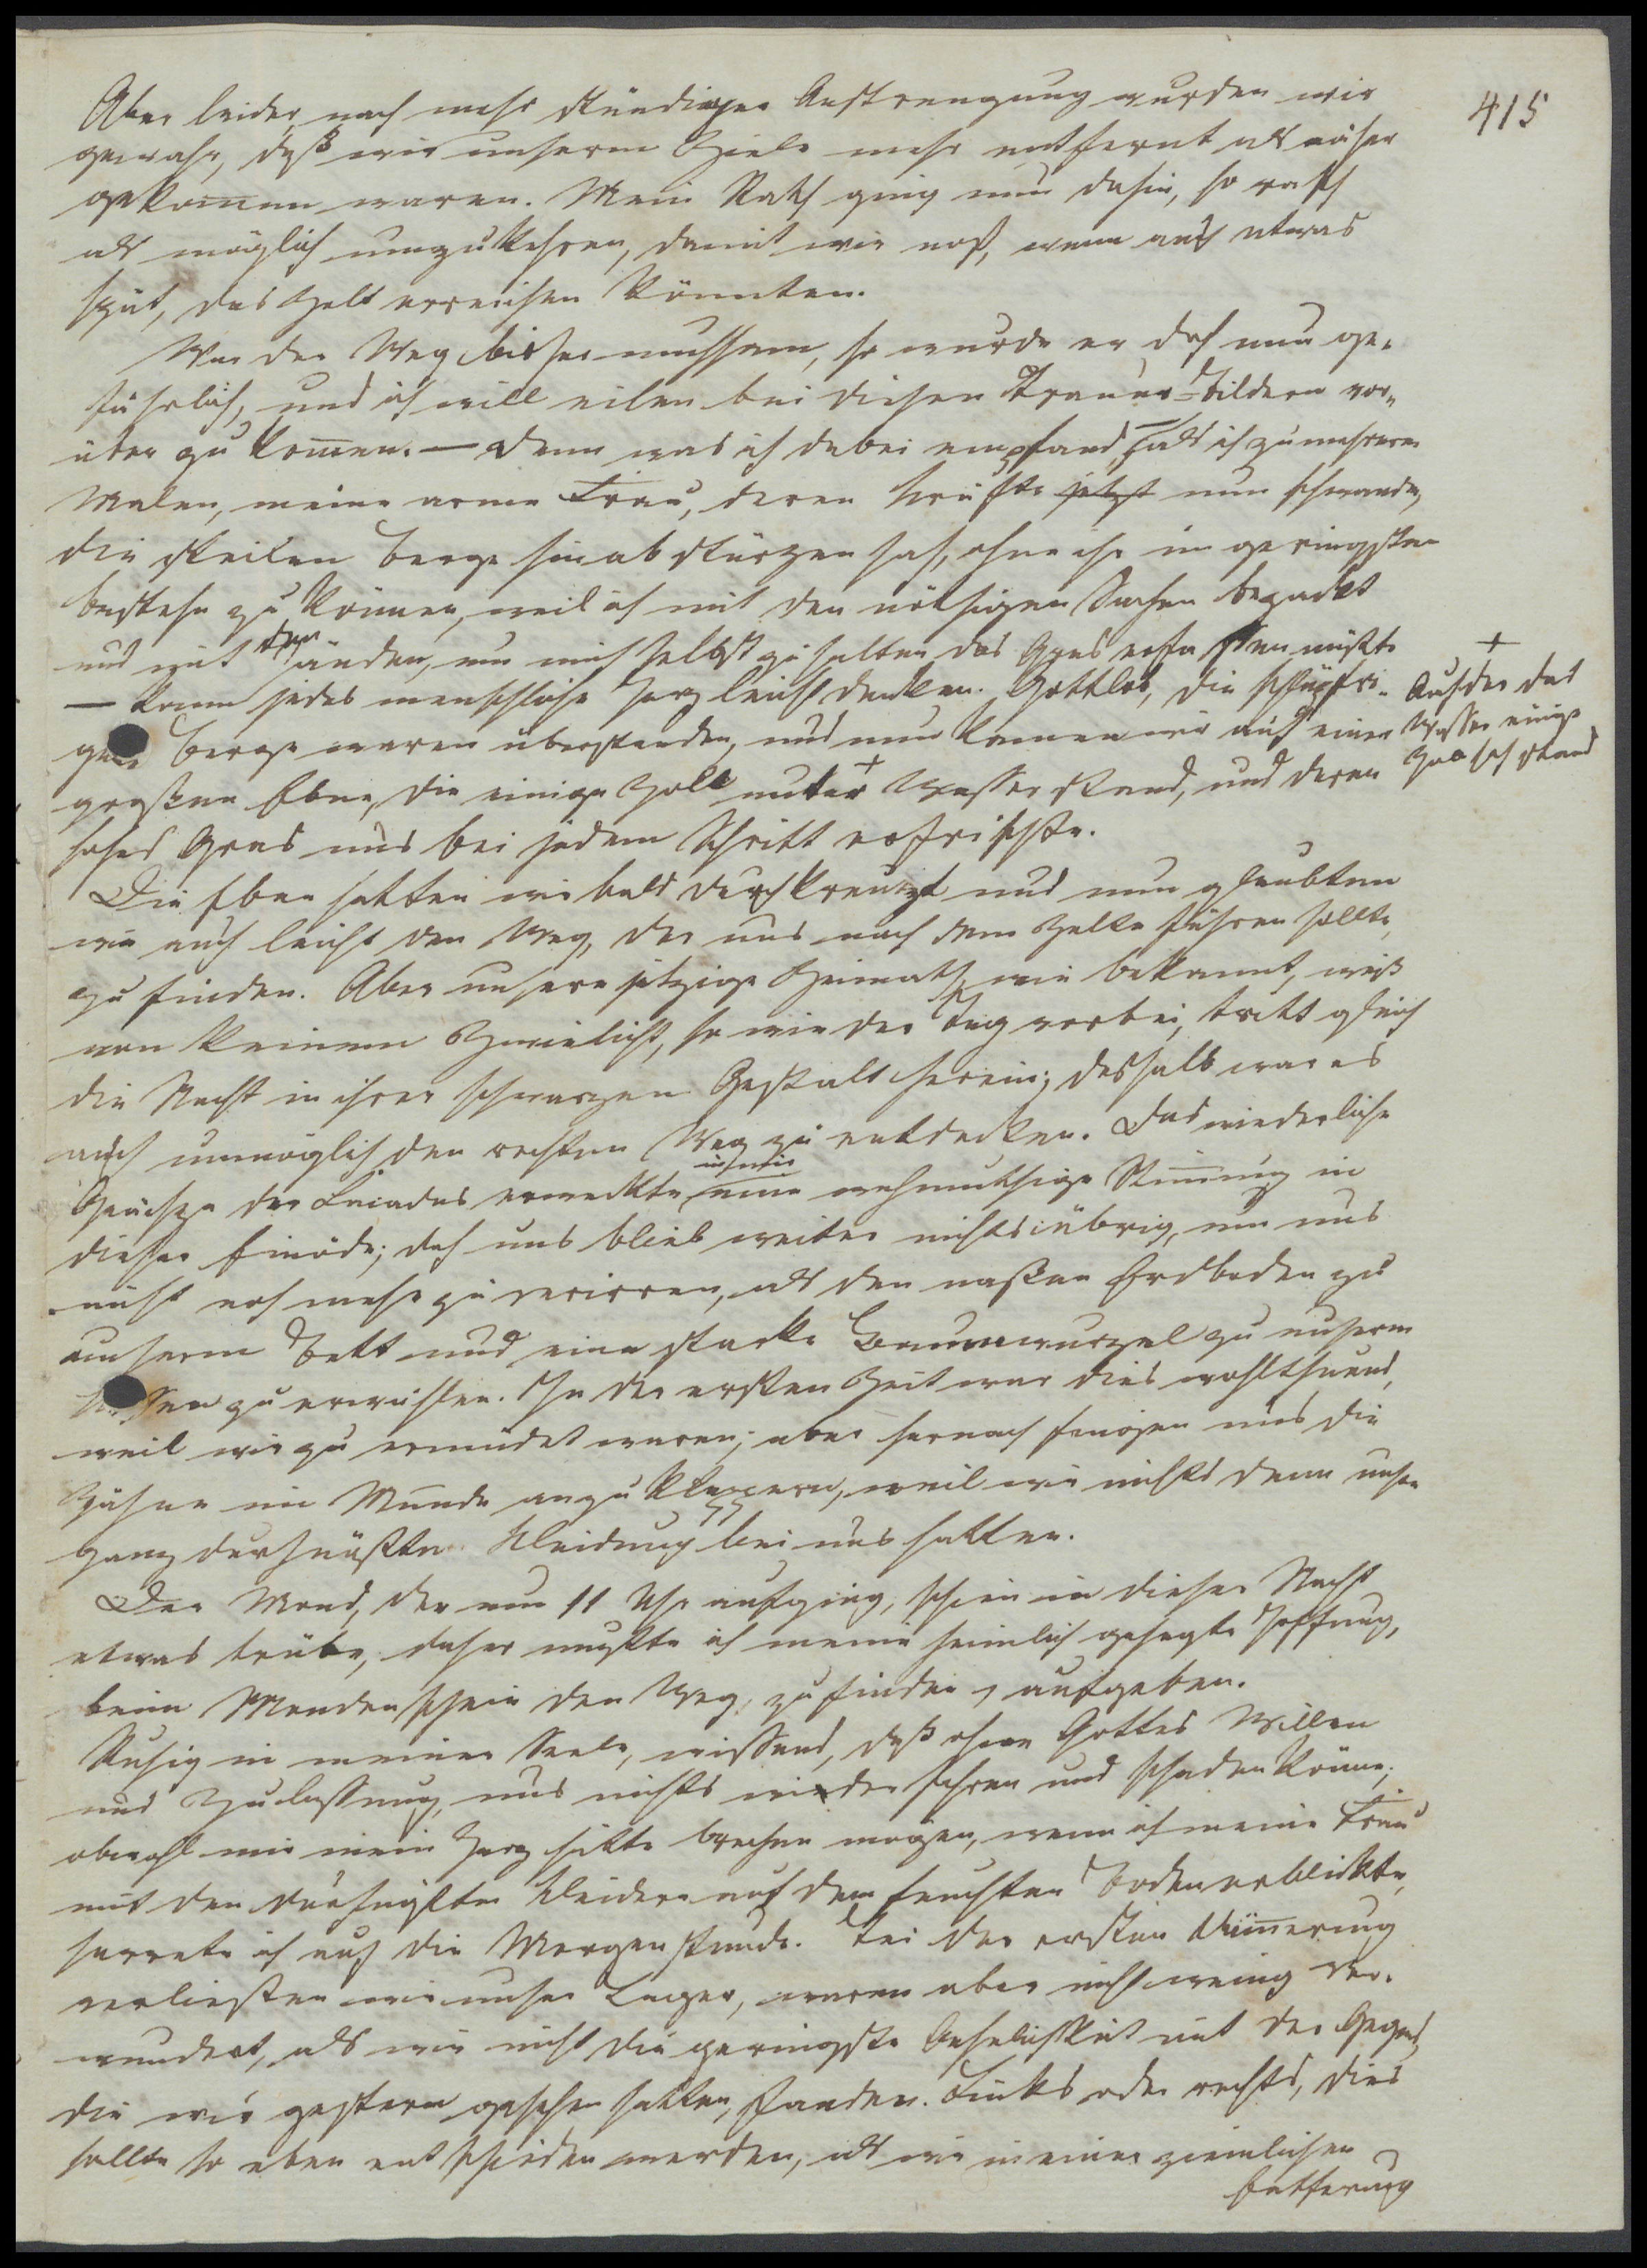 415
Aber leider nach mehr stündiger Anstrengung wurden wir
gewahr, daß wir unserem Ziele mehr entfernt als näher
gekommen waren. Mein Rath ging nun dahin, so rasch
als möglich umzukehren, damit wir noch, wenn auch etwas
spät, das Zelt erreichen könnten.
War der Weg bisher mühsam, so wurde er doch nun ge-
fährlich, und ich will eilen bei diesen Trauer-Bildern vor-
über zu kommen. — Denn was ich dabei empfand, als ich zu mehreren
Malen, meine arme Frau, deren Kräfte jetzt nun schwanden,
die steilen Berge hinabstürzen sah, ohne ihr im geringsten
beistehn zu können, weil ich mit den nöthigen Sachen bepackt
und mit den Händen, um mich selbst zu halten das Gras erfassen mußte
— kann jedes menschliche Herz leicht denken. Gottlob, die schlüpfri-
gen Berge waren überstanden, und nun kamen wir auf einen
großen Ebne, die einige Zoll unter + Wasser stand, und deren
hohes Gras uns bei jedem Schritt erfrischte.
+
Auf der das
Wasser einige
Zoll hoch stand
Die Ebne hatten wir bald durchkreuzt und nun glaubten
wir auch leicht den Weg, der uns nach dem Zelte führen sollte,
zu finden. Aber unsere jetzige Heimath, wie bekannt, weiß
von keinem Zwielicht, so wie der Tag vorbei, tritt gleich
die Nacht in ihrer schwarzen Gestalt herein; deshalb war es
auch unmöglich den rechten Weg zu entdecken. Das wiederliche
Gekrächze der erweckte in mir eine wehmuthige Stimmung in
dieser Einöde; doch uns blieb weiter nichts übrig, um uns
nicht noch mehr zu verirren, als den naßen Erdboden zu
unserem Bett und eine starke Baumwurzel zu unserm
Kissen zu erwählen. In der ersten Zeit war dies wohlthuend,
weil wir zu ermüdet waren; aber hernach fingen uns die
Zähne im Munde an zu klappern, weil wir nichts denn unsre
ganz durchnäßte Kleidung bei uns hatten.
Der Mond, der um 11 Uhr aufging, schien in dieser Nacht
etwas trübe, daher mußte ich meine heimlich gehegte Hoffnung,
beim Mondenschein den Weg zu finden, aufgeben.
Ruhig in meiner Seele, wissend, daß ohne Gottes Willen
und Zulassung, uns nichts wiederfahren und schaden könne;
obwohl mir mein Herz hätte brechen mögen, wenn ich meine Frau
mit den durchnäßten Kleidern auf dem feuchten Boden erblickte,
harrete ich auf die Morgenstunde. Bei der ersten Dämmerung
verließen wir unser Lager, waren aber nicht wenig ver-
wundert, als wir nicht die geringste Aehnlichkeit mit der Gegend,
die wir gestern gesehen hatten, fanden. Links oder rechts, dies
sollte so eben entschieden werden, als wir in einer ziemlichen
Entfernung